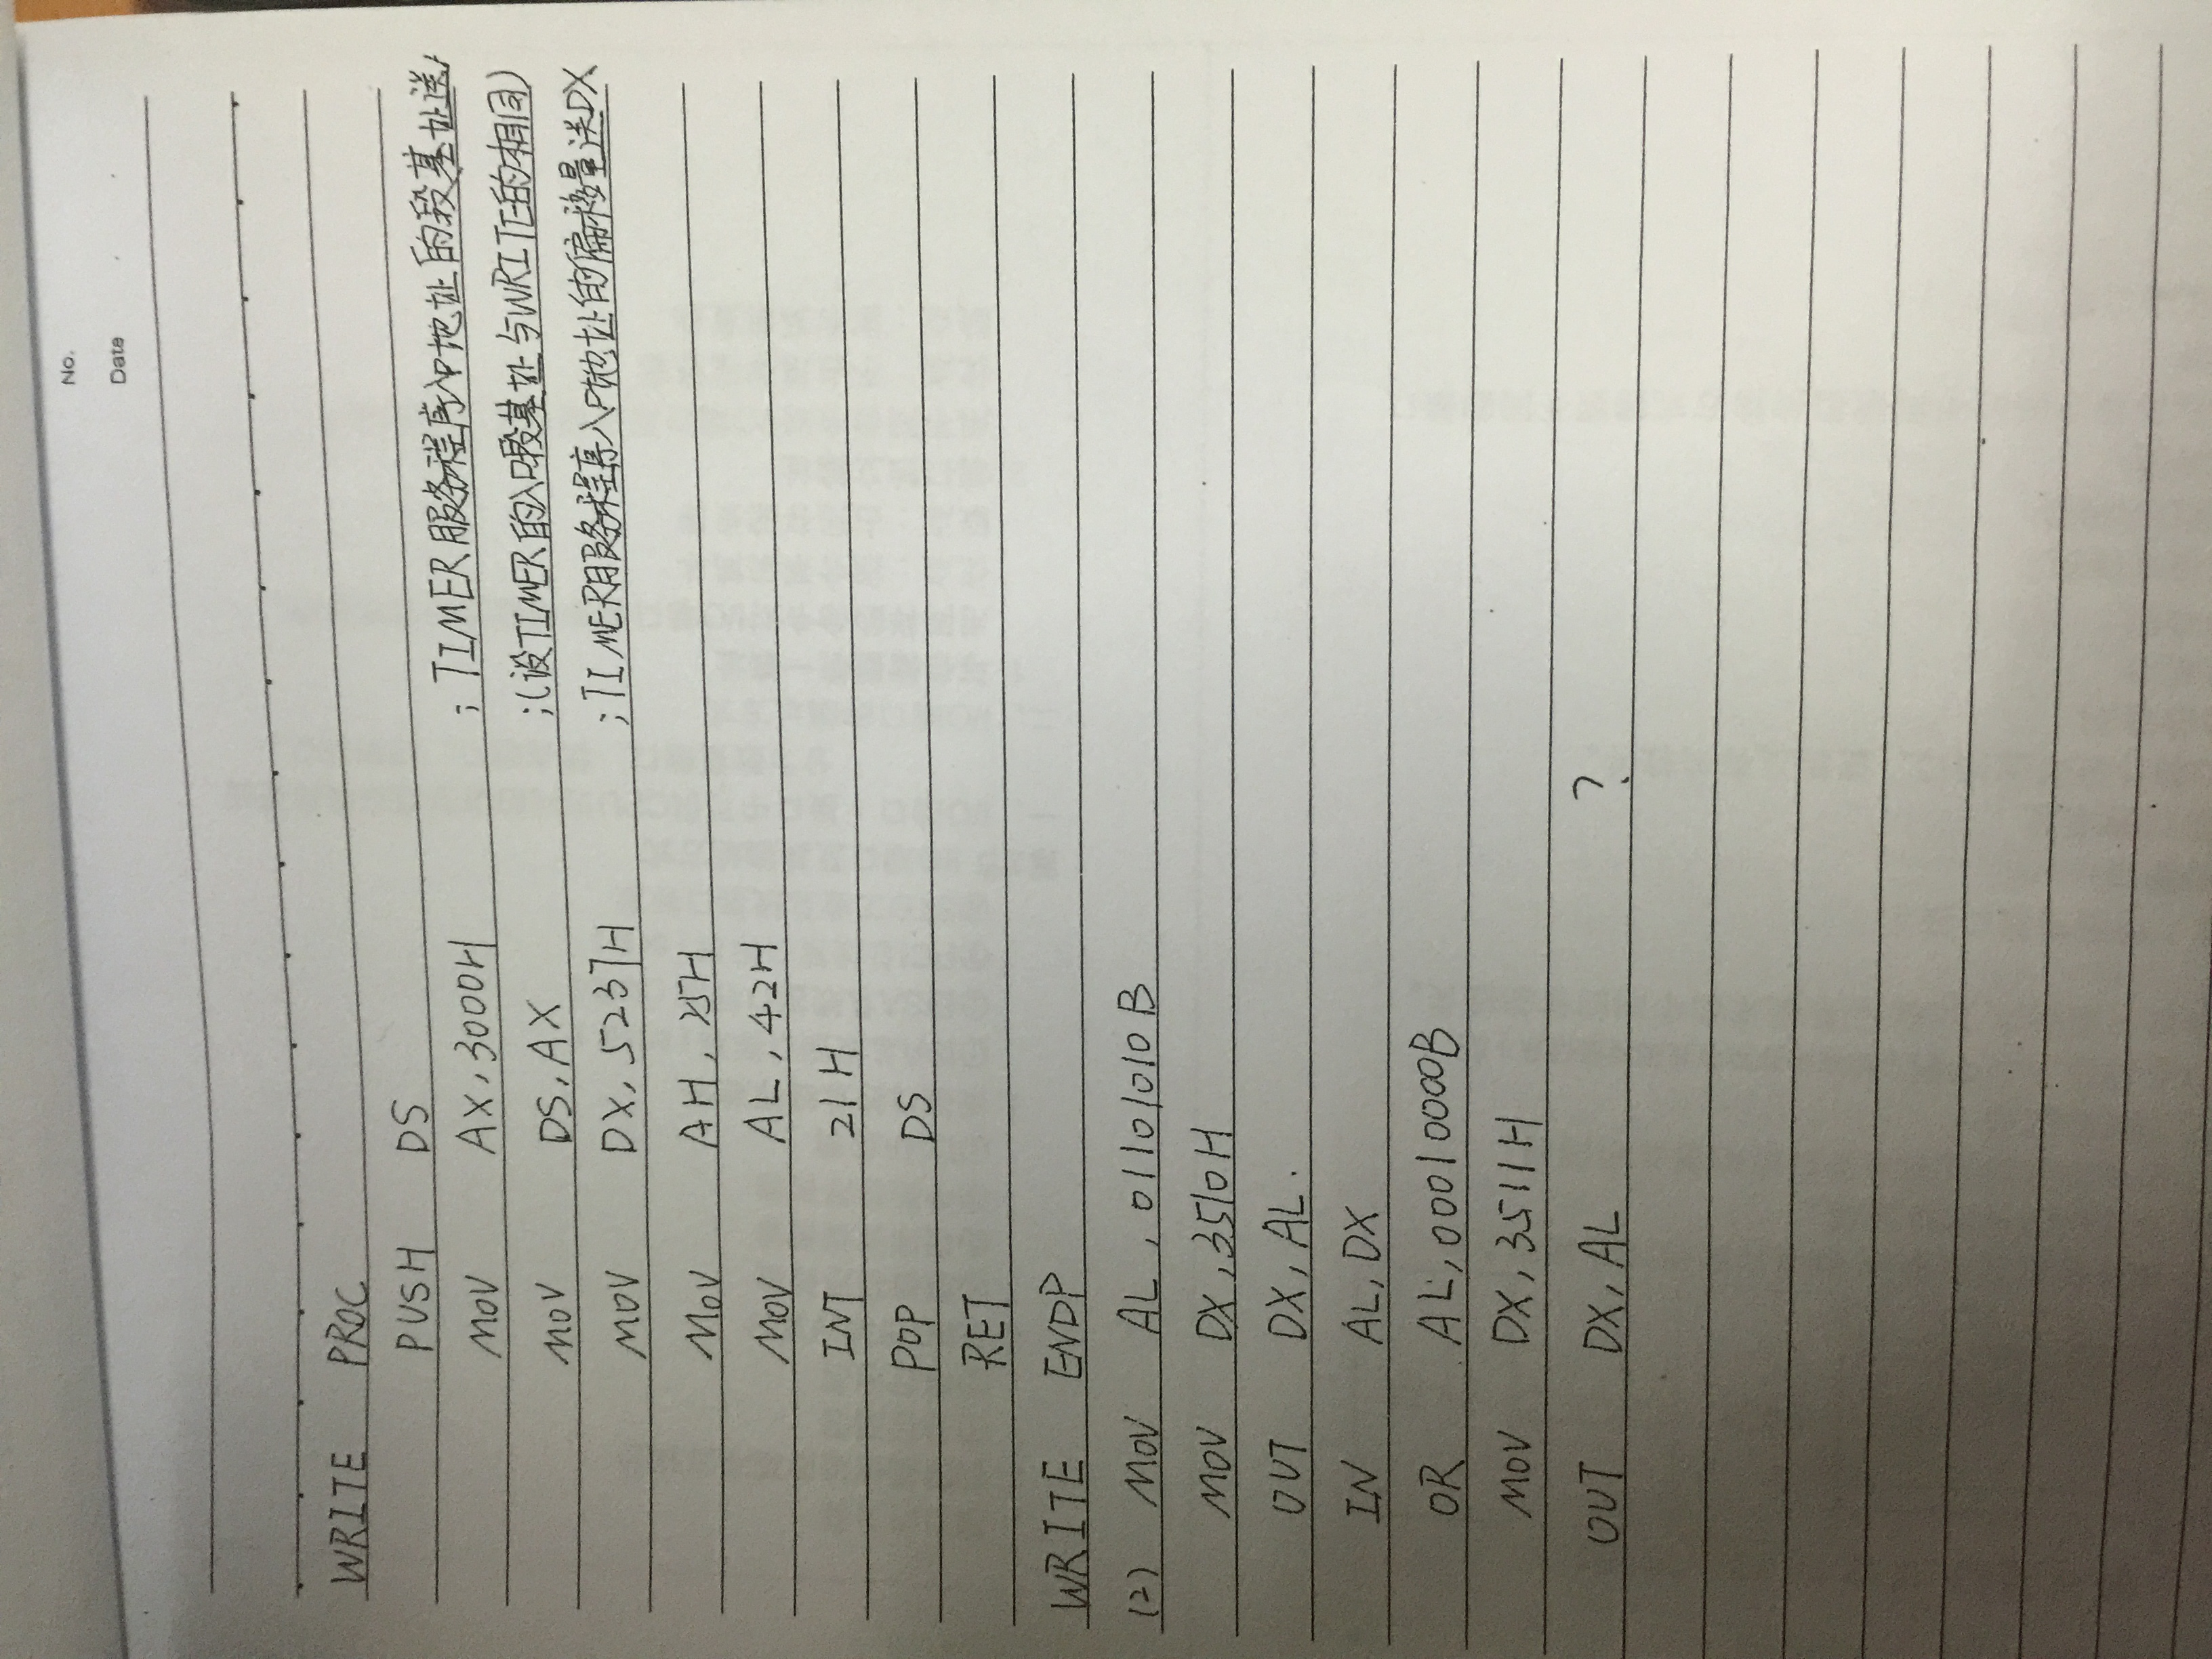 No.
Date
WRITE PROC
PUSH DS
MOV AX, 3000H ; TIMER服务程序入口地址的段基址送
MOV DS, AX ;(设TIMER的入口段基址与WRITE的相同)
MOV DX, 5237H ;TIMER服务程序入口地址的偏移量送DX
MOV AH, 25H
MOV AL, 42H
INT 21H
POP DS
RET
WRITE ENDP
(2) MOV AL, 01101010B
MOV DX, 3510H
OUT DX, AL.
IN AL, DX
OR AL, 00010000B
MOV DX, 3511H
OUT DX, AL ?